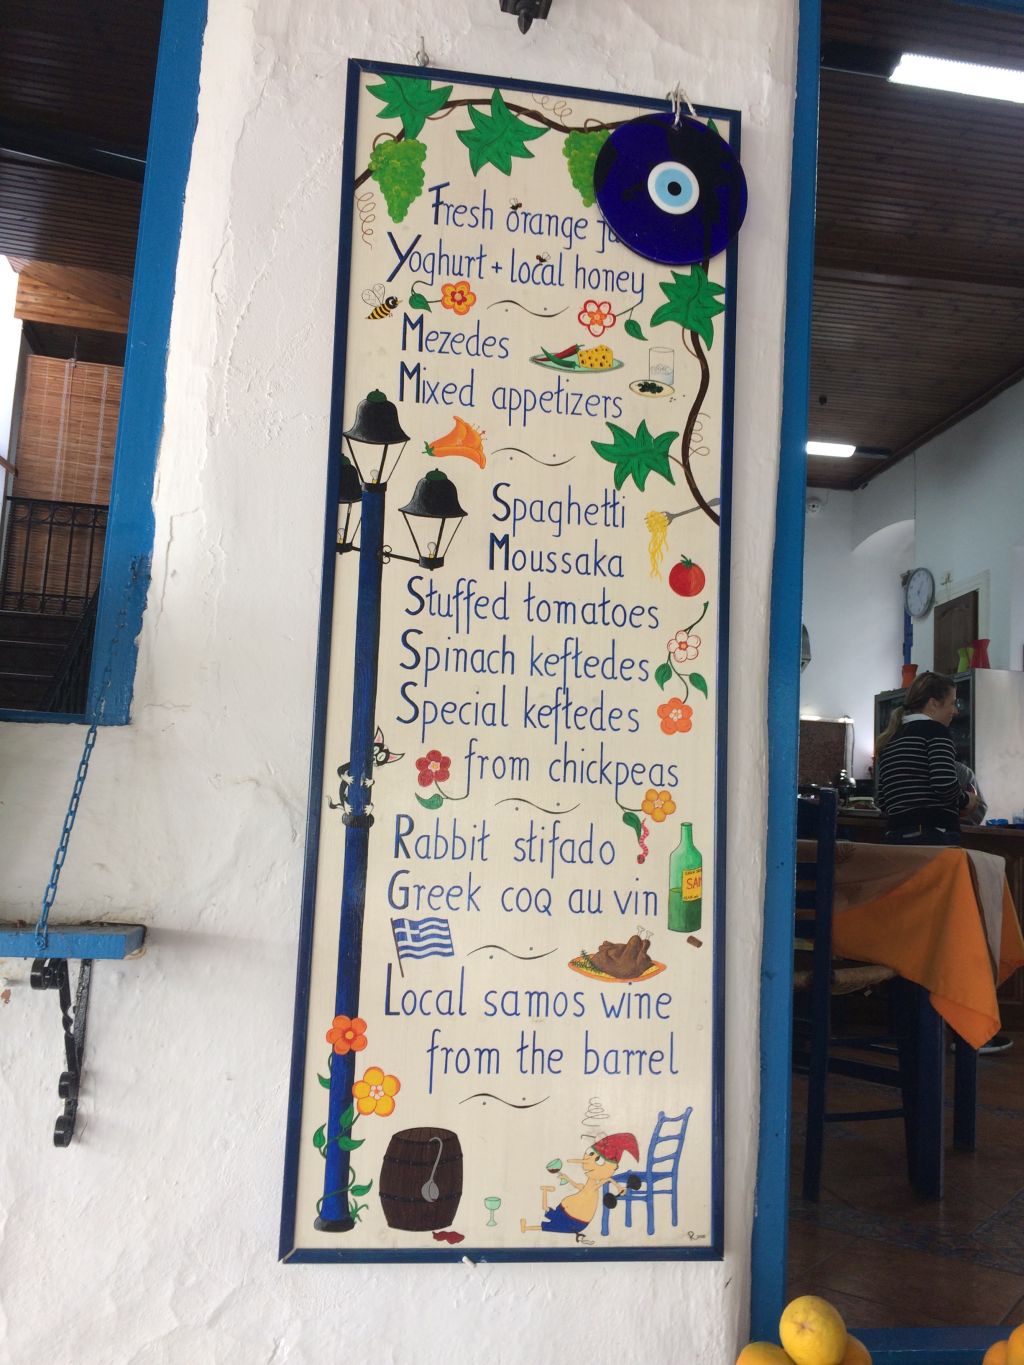 Fresh orange
Yoghurt + local honey
Mezedes
Mixed appetizers
Spaghetti
Moussaka
Stuffed tomatoes
Spinach keftedes
Special keftedes
from chickpeas
Rabbit stifado
Greek coq au vin
Local samos wine
from the barrel